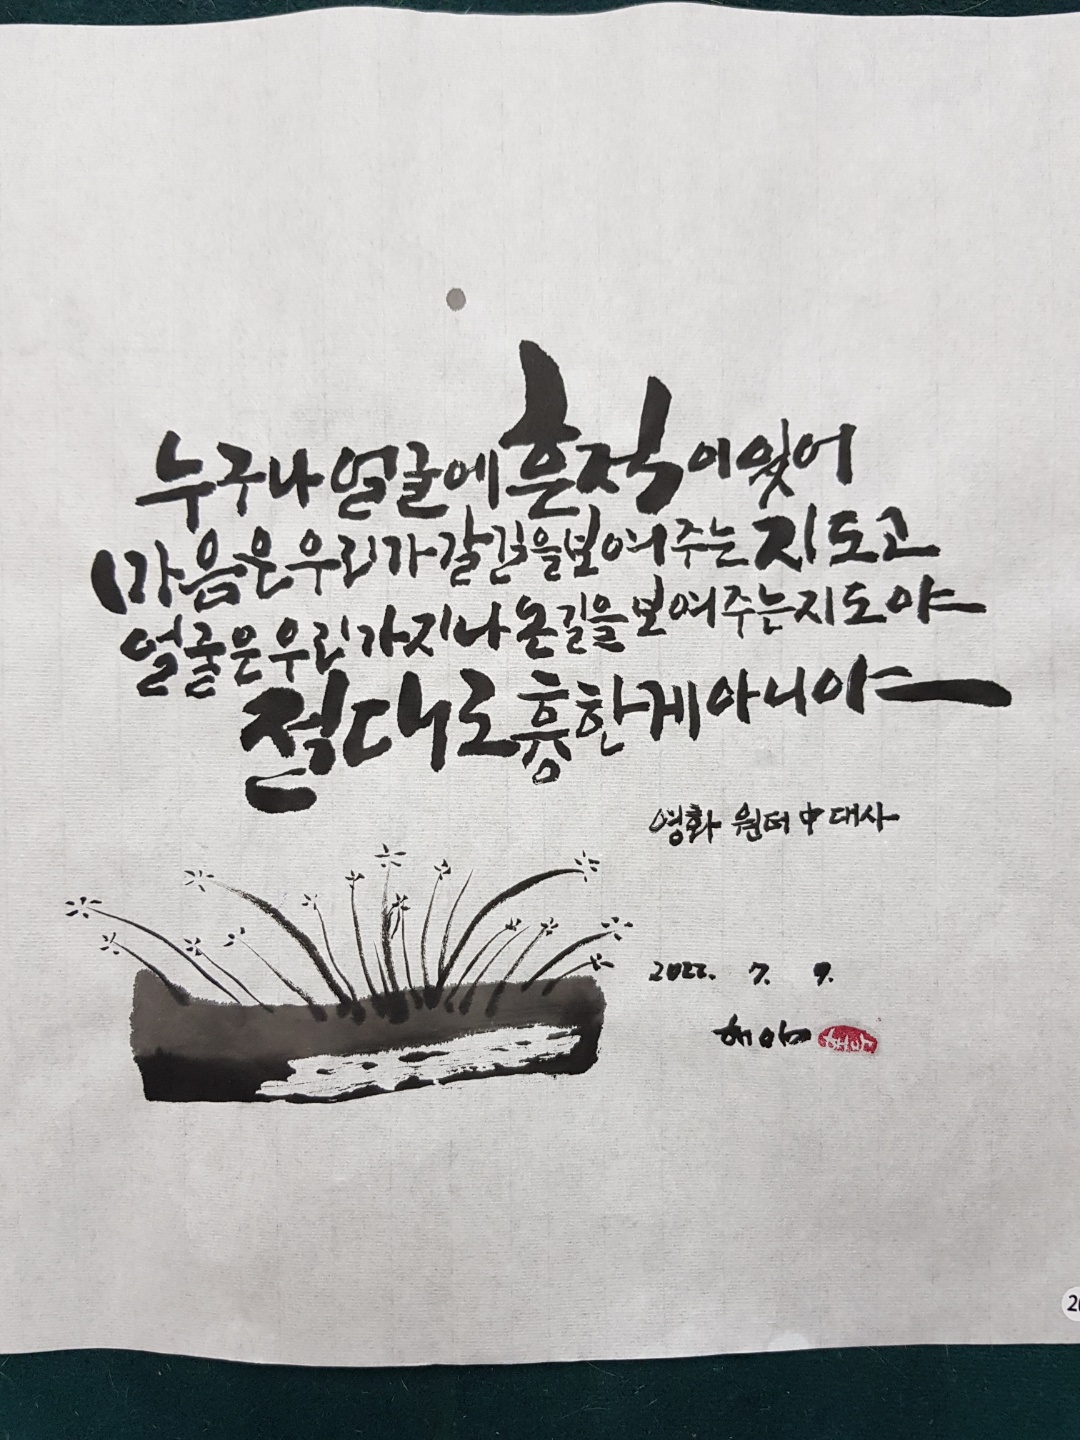 누구나 얼굴에 흔적이 있어
마음은 우리가 갈 길을 보여주는 지도고
얼굴은 우리가 지나온 길을 보여주는 지도야
절대로 흉한게 아니야
영화 원더 中 대사
2022. 7. 9.
혜암
혜암